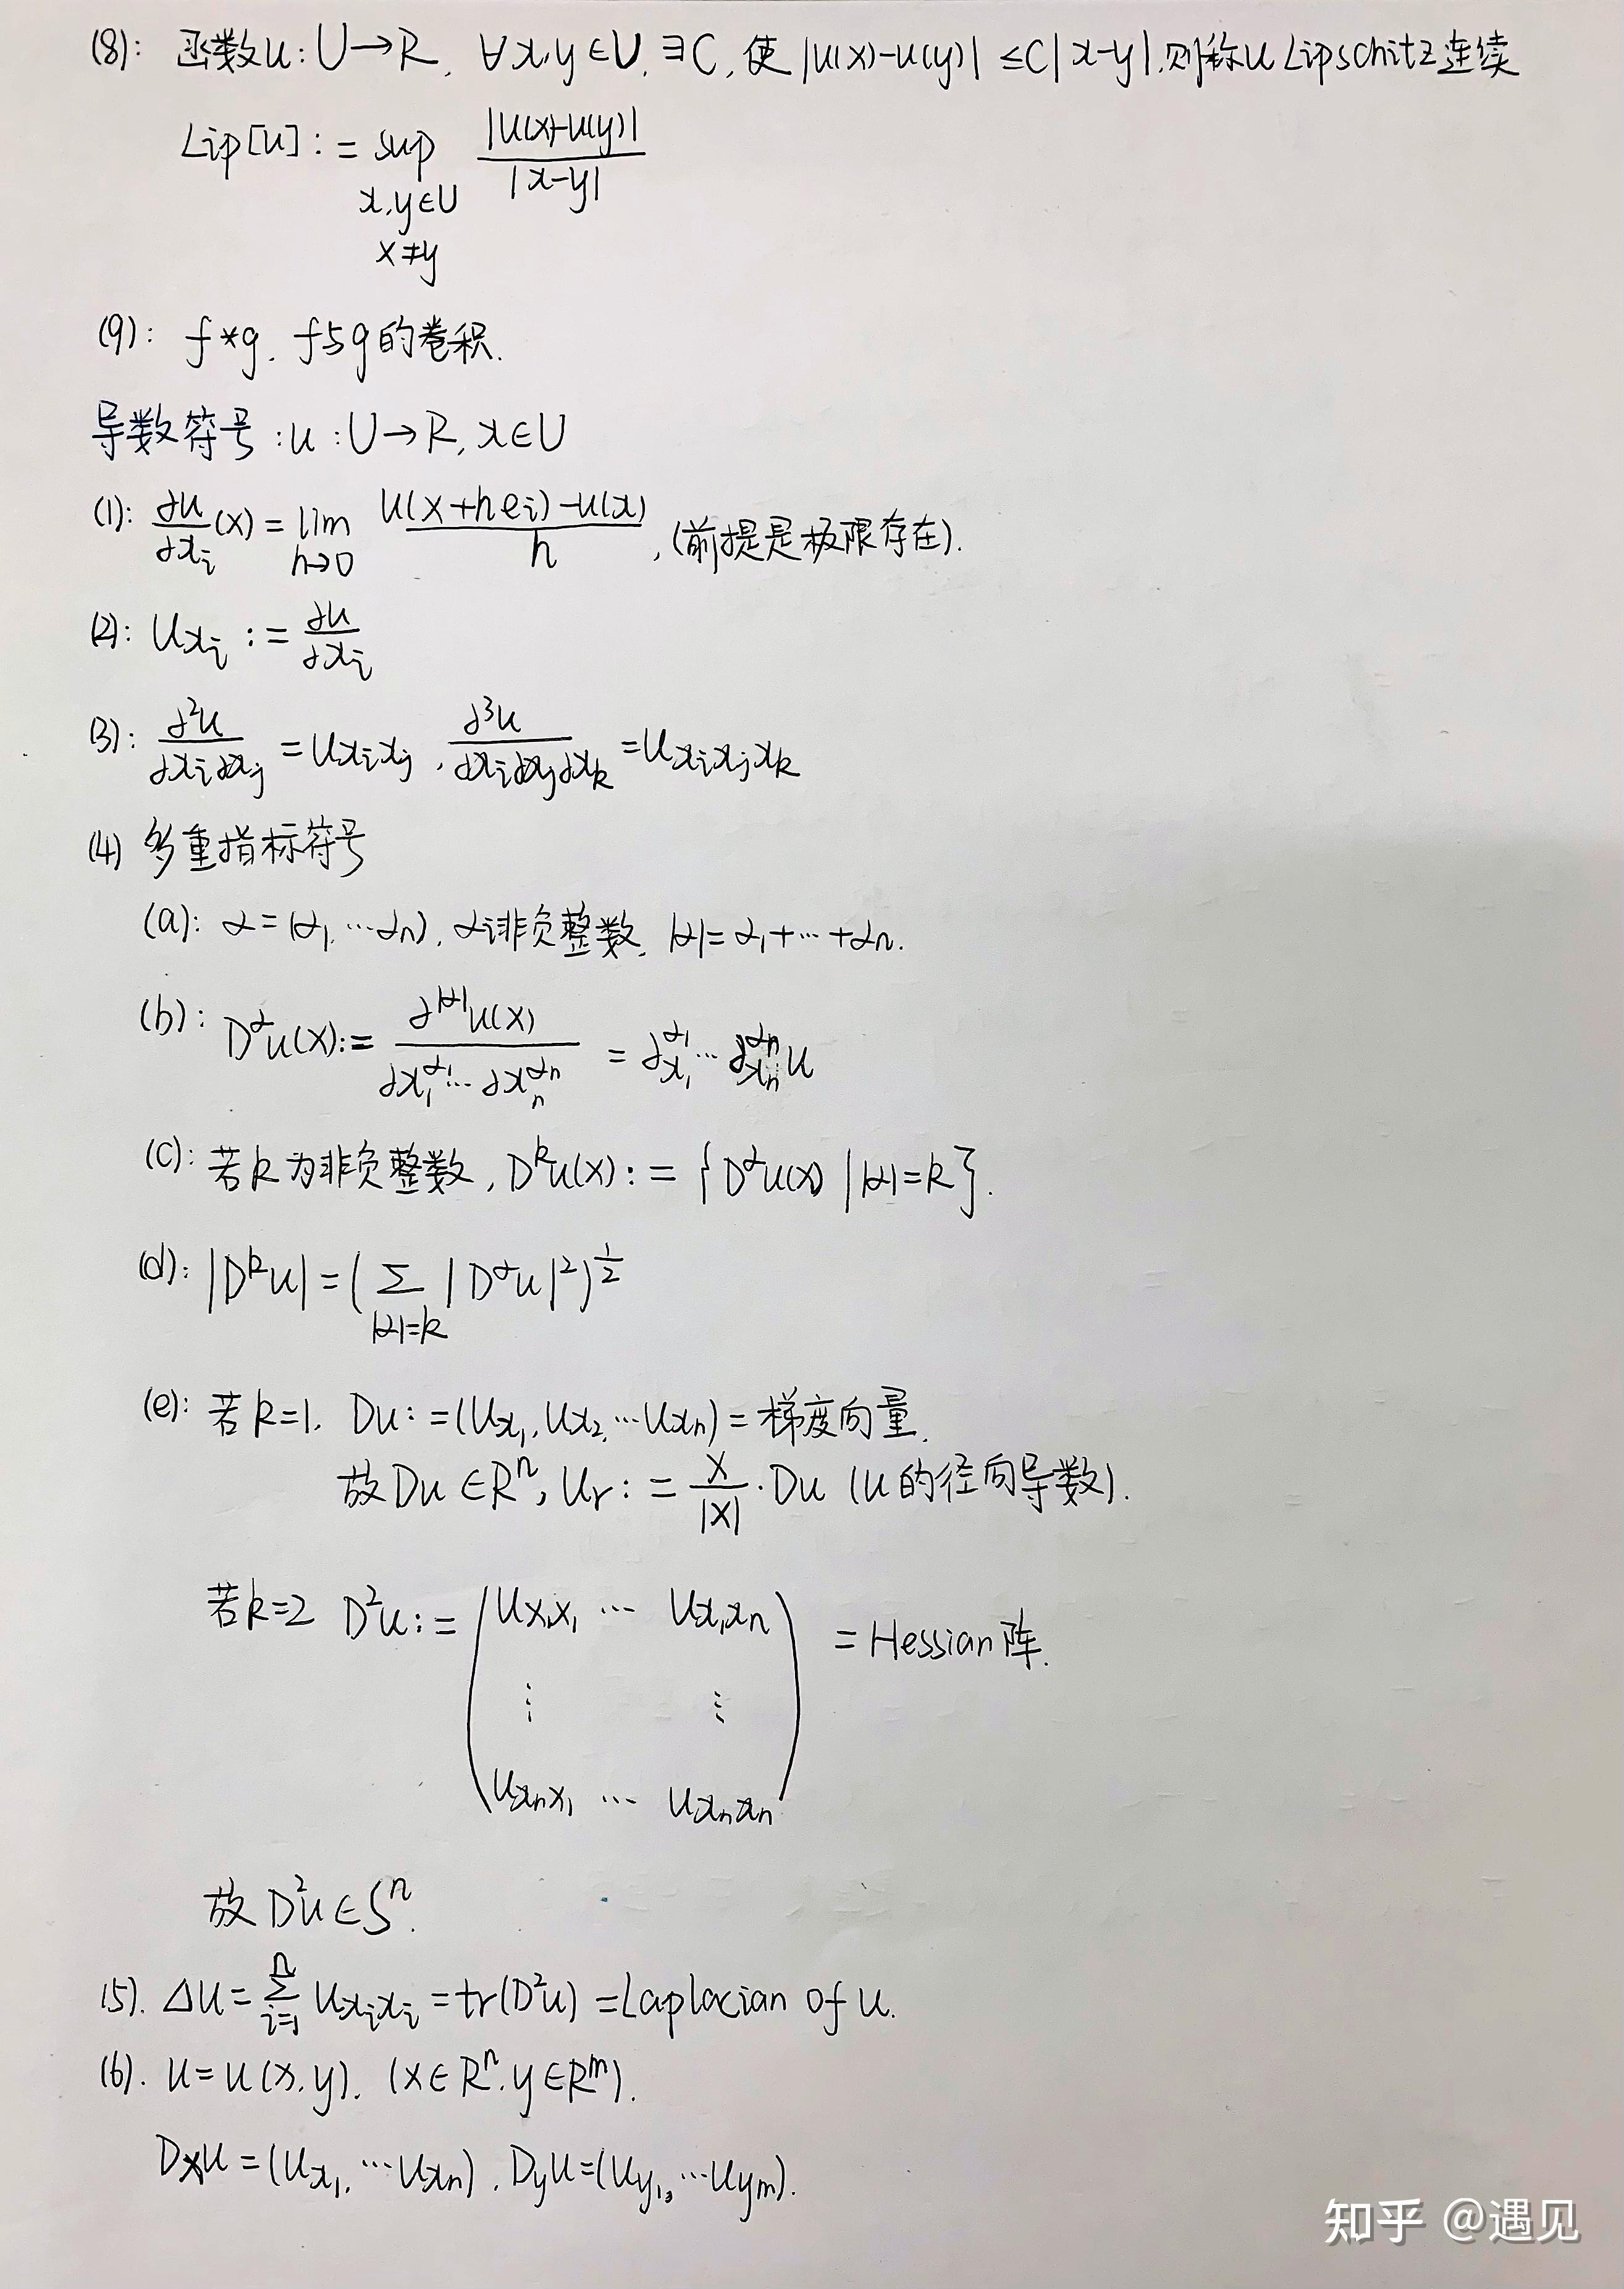 (8): 函数u: U→R, ∀x,y∈U, ∃C, 使|u(x)-u(y)|≤C|x-y|,则称u Lipschitz连续
Lip[u] := sup_{x,y∈U, x≠y} |u(x)-u(y)| / |x-y|
(9): f*g, f与g的卷积.
导数符号: u: U→R, x∈U
(1): ∂u/∂x_i (x) = lim_{h→0} (u(x+he_i)-u(x))/h, (前提是极限存在).
(2): u_{x_i} := ∂u/∂x_i
(3): ∂²u/∂x_i∂x_j = u_{x_i x_j}, ∂³u/∂x_i∂x_j∂x_k = u_{x_i x_j x_k}
(4) 多重指标符号
(a): α=(α_1,⋯α_n), α_i非负整数, |α|=α_1+⋯+α_n.
(b): D^α u(x) := ∂^{|α|}u(x) / ∂x_1^{α_1}⋯∂x_n^{α_n} = ∂_{x_1}^{α_1}⋯∂_{x_n}^{α_n} u
(c): 若k为非负整数, D^k u(x) := {D^α u(x) | |α|=k}.
(d): |D^k u| = (Σ_{|α|=k} |D^α u|²)^{1/2}
(e): 若k=1, Du := (u_{x_1}, u_{x_2},⋯u_{x_n}) = 梯度向量.
故Du∈R^n, u_r := x/|x| · Du (u的径向导数).
若k=2 D²u := (u_{x_1 x_1} ⋯ u_{x_1 x_n}
⋮ ⋮
u_{x_n x_1} ⋯ u_{x_n x_n}) = Hessian阵.
故 D²u∈S^n.
(5). Δu = Σ_{i=1}^n u_{x_i x_i} = tr(D²u) = Laplacian of u.
(6). u=u(x,y), (x∈R^n, y∈R^m).
D_x u = (u_{x_1},⋯u_{x_n}), D_y u = (u_{y_1},⋯u_{y_m}).
知乎 @遇见